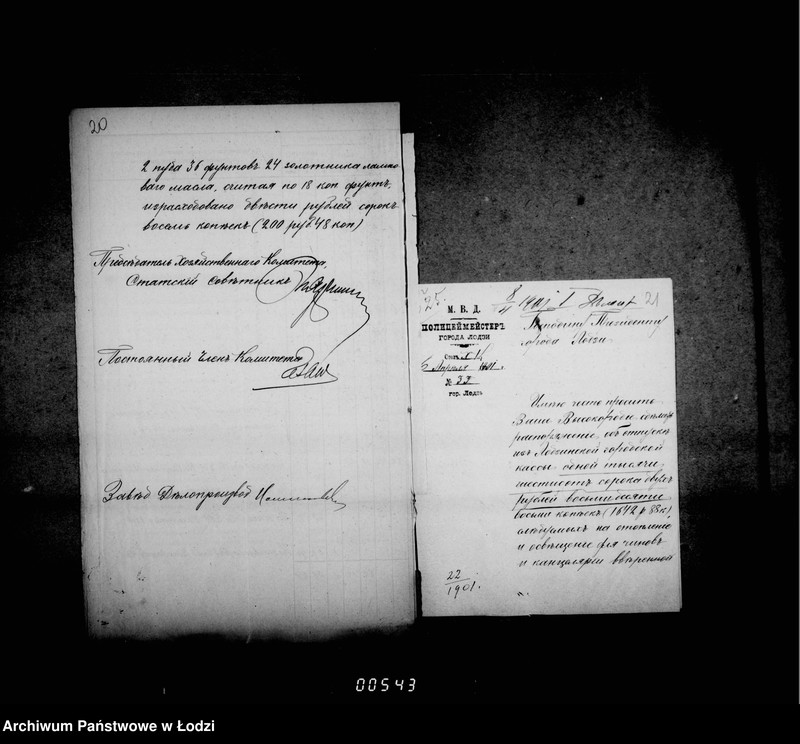 20
2 пуда 36 фунтовъ 24 золотника лампо
ваго масла, считая по 18 коп фунтъ,
израсходовано двѣсти рублей сорокъ
восемь копѣекъ (200 руб 48 коп)
Предсѣдатель Хозяйственнаго Комитета,
Статскій Совѣтникъ
Постоянный Членъ Комитета
Завѣд Дѣлопроизвод
21
М. В. Д.
ПОЛИЦЕЙМЕЙСТЕРЪ
ГОРОДА ЛОДЗИ
Апрѣля 1901 г.
№ 33
гор. Лодзь
Президенту
города Лодзи
Имѣю честь просить
Ваше Высокородіе сдѣлать
распоряженіе объ отпускѣ
изъ Лодзинской городской
кассы одной тысячи
шестисотъ сорока двухъ
рублей восьмидесяти
восьми копѣекъ (1642 р 88 к)
на отопленіе
и освѣщеніе для чиновъ
и канцеляріи ввѣренной
22
1901.
00543
Archiwum Państwowe w Łodzi